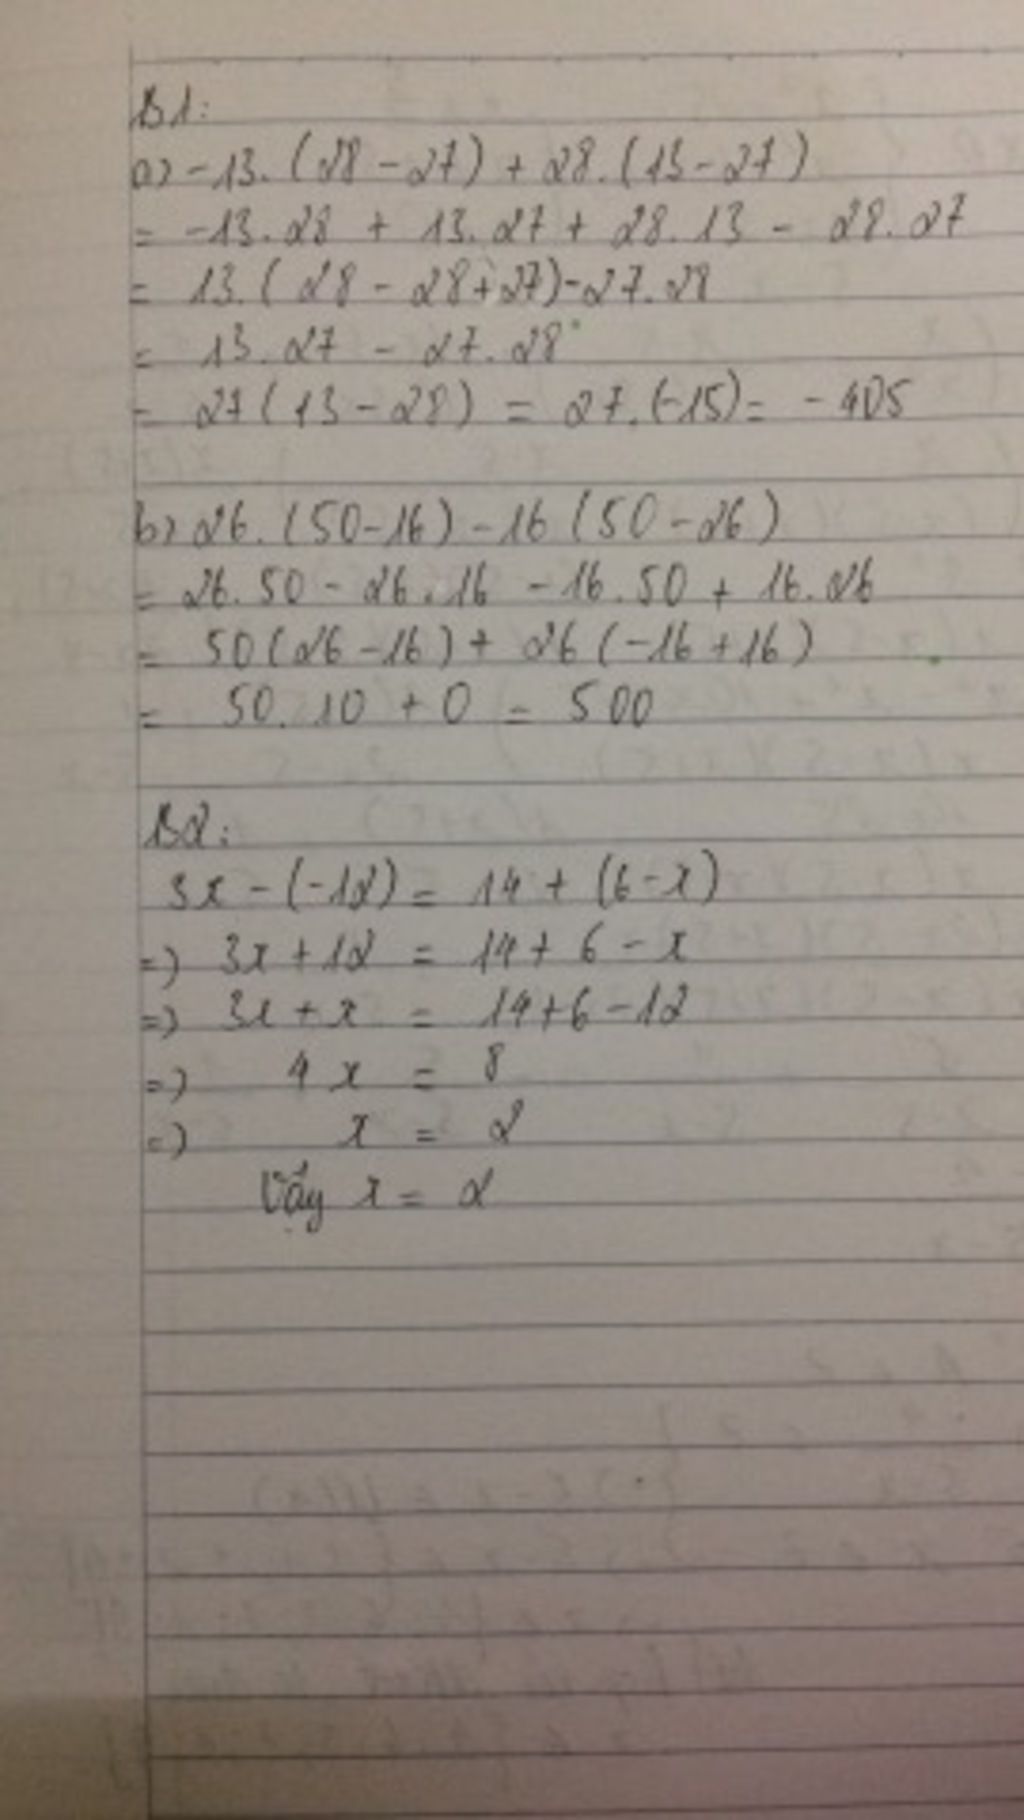 B1:
a) -13.(28-27) + 28.(13-27)
= -13.28 + 13.27 + 28.13 - 28.27
= 13.(28 - 28+27)-27.28
= 13.27 - 27.28
= 27(13-28) = 27.(-15)= -405
b) 26.(50-16) - 16(50-26)
= 26.50 - 26.16 - 16.50 + 16.26
= 50(26-16) + 26(-16+16)
= 50.10 + 0 = 500
B2:
3x - (-12) = 14 + (6-x)
=) 3x+12 = 14+6-x
=) 3x+x = 14+6-12
=) 4x = 8
=) x = 2
Vậy x = 2